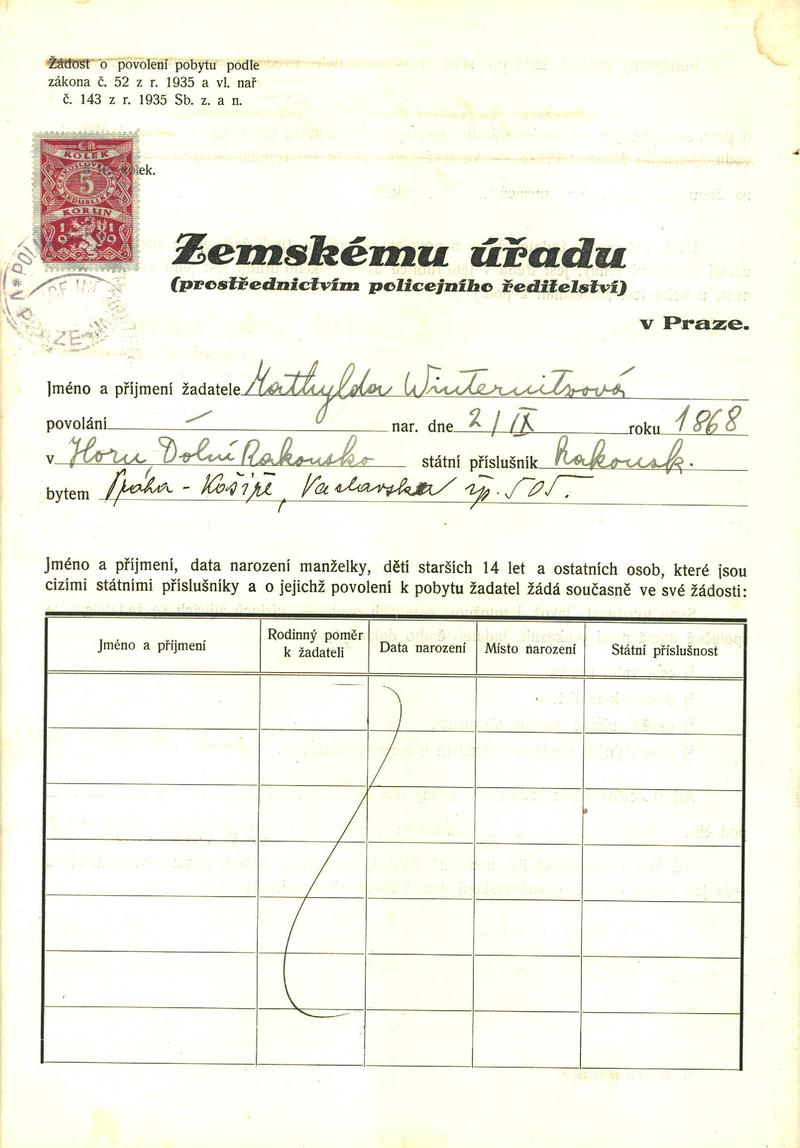 Žádost o povolení pobytu podle
zákona č. 52 z r. 1935 a vl. nař
č. 143 z r. 1935 Sb. z. a n.
KOLEK
5
KORUN
1919
Zemskému úřadu
(prostřednictvím policejního ředitelství)
v Praze.
Jméno a příjmení žadatele Mathylda Winternitzová
povolání — nar. dne 2/IX roku 1868
v Horn, Dolní Rakousko státní příslušník Rakousk.
bytem Praha - Košíře, Vaclavska čp. 505.
Jméno a příjmení, data narození manželky, dětí starších 14 let a ostatních osob, které jsou
cizími státními příslušníky a o jejichž povolení k pobytu žadatel žádá současně ve své žádosti:
Jméno a příjmení Rodinný poměr k žadateli Data narození Místo narození Státní příslušnost